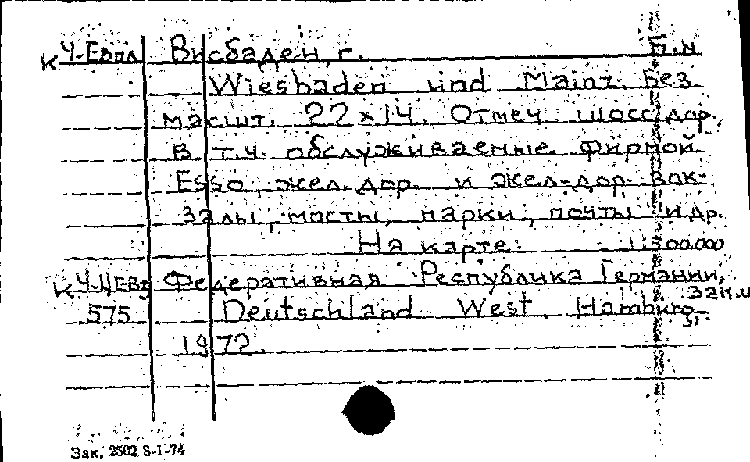 К Ч-Евпл Висбаден, г. Б.м
Wiesbaden und Mainz. Без
масшт. 22×14. Отмеч. шосс. дор.,
в т.ч. обслуживаемые фирмой
Esso, жел. дор. и жел-дор. вок-
залы, мосты, парки, почты и др.
На карте: 1:500.000
К Ч-ЦЕвр Федеративная Республика Германии,
575 Deutschland West. Hamburg,
1972.
Зак. 2502 8-1-74